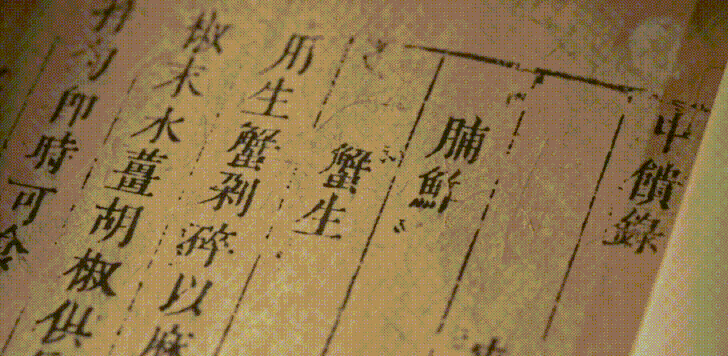 中饋錄
脯鮓
蟹生
用生蟹剁碎以麻
椒末水薑胡椒俱
勻即時可食